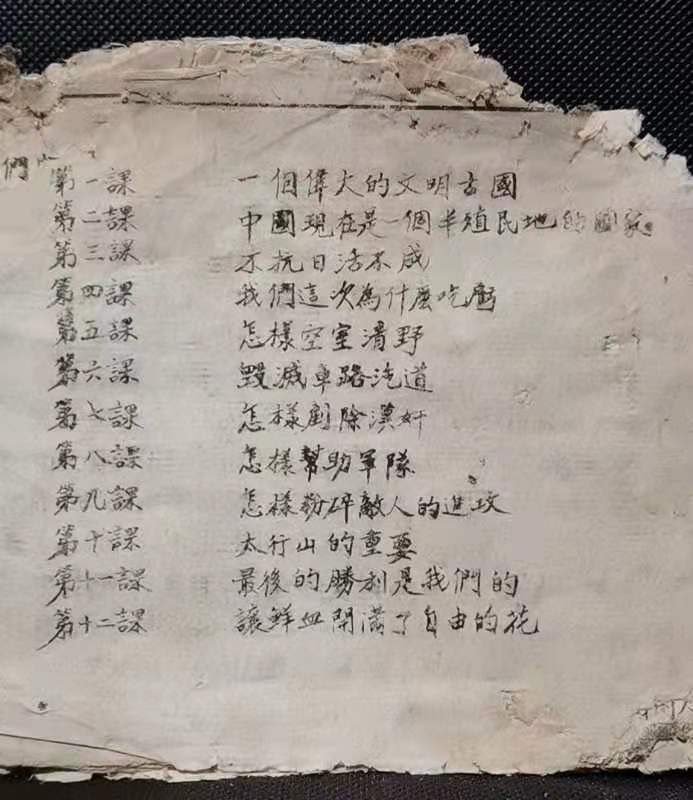 們
第一課 一個偉大的文明古國
第二課 中國現在是一個半殖民地的國家
第三課 不抗日活不成
第四課 我們這次為什麽吃虧
第五課 怎樣空室清野
第六課 毀滅車路汽道
第七課 怎樣剷除漢奸
第八課 怎樣幫助軍隊
第九課 怎樣粉碎敵人的進攻
第十課 太行山的重要
第十一課 最後的勝利是我們的
第十二課 讓鮮血開滿了自由的花